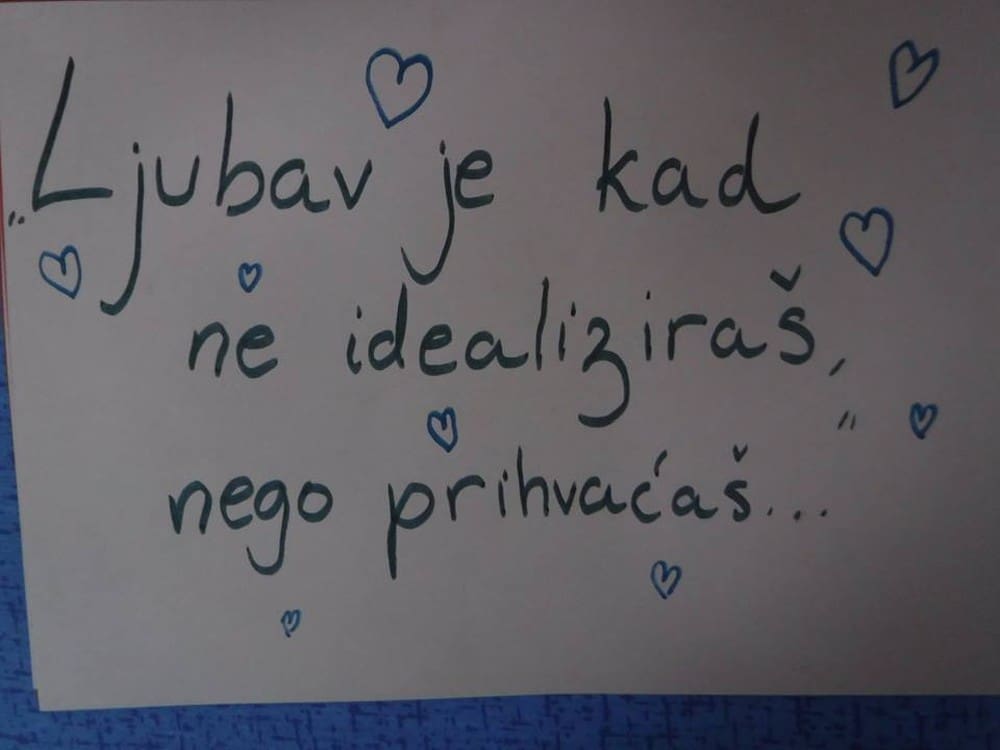 „Ljubav je kad
ne idealiziraš,
nego prihvaćaš..."